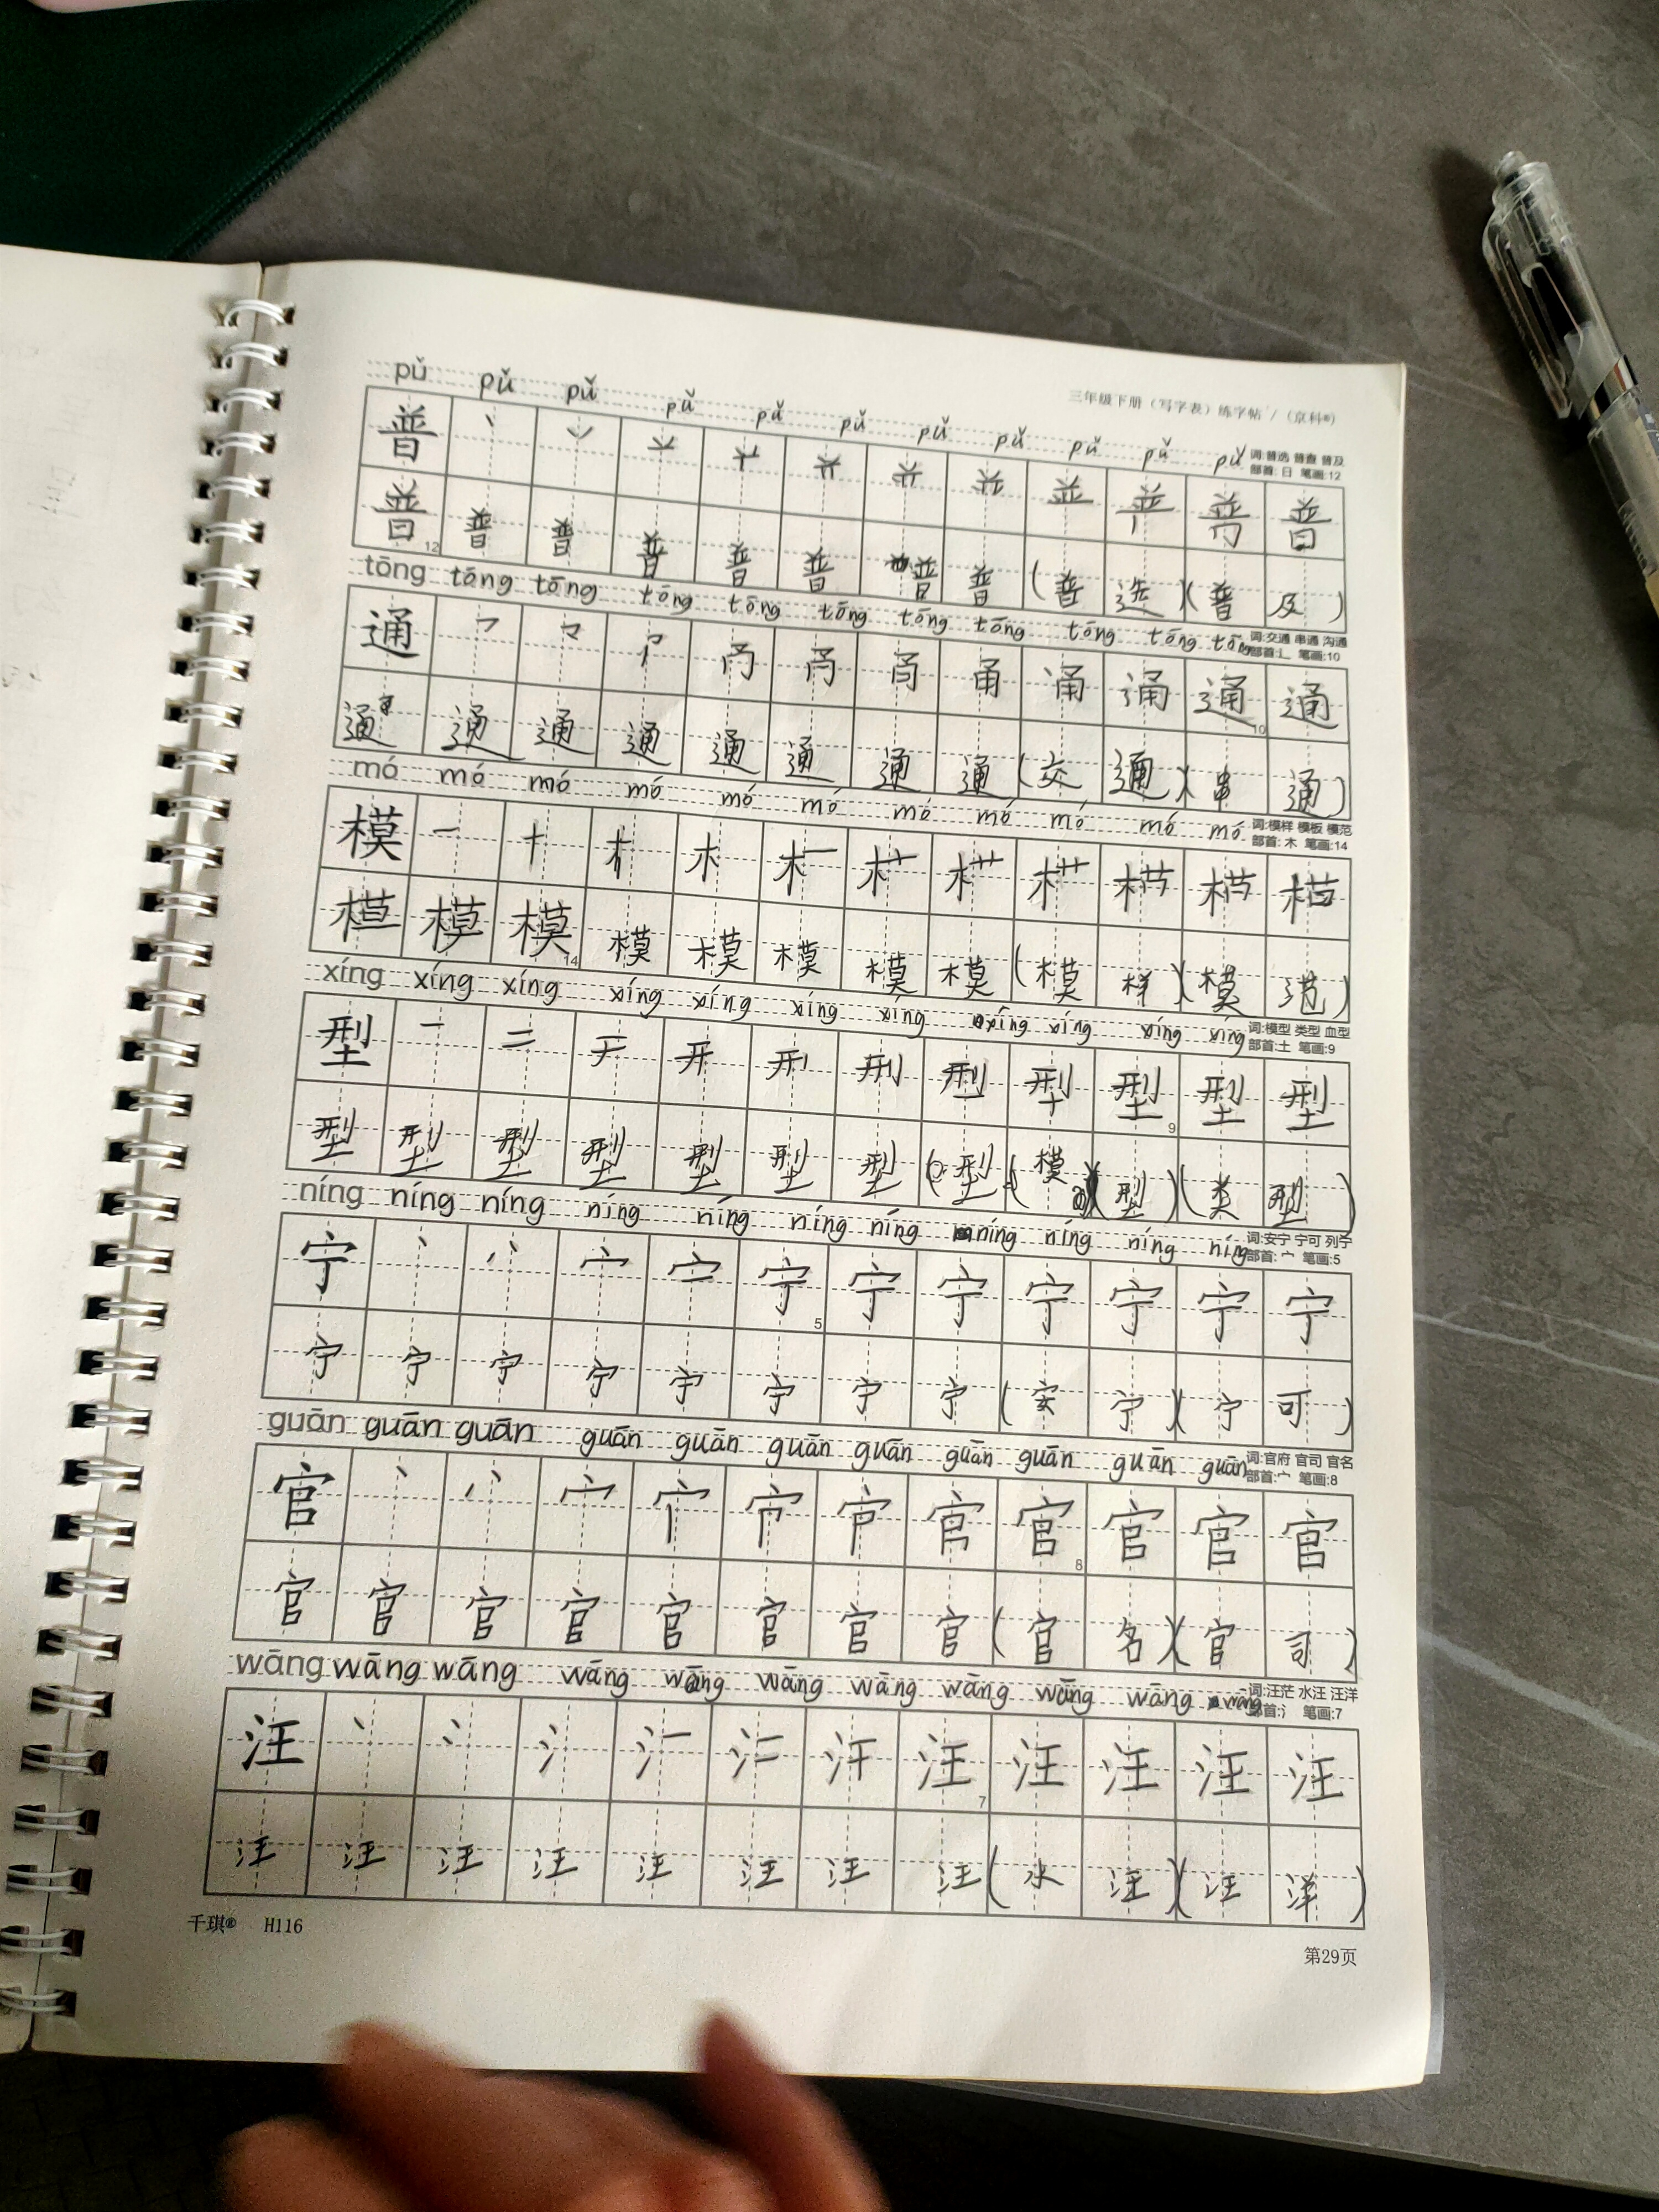 三年级下册（写字表）练字帖 /（京科®）
pǔ pǔ pǔ pǔ pǔ pǔ pǔ pǔ pǔ pǔ pǔ
词:普选 普查 普及
部首: 日 笔画:12
普 普
普 12 普 普 普 普 普 普 普 (普 选)(普 及)
tōng tōng tōng tōng tōng tōng tōng tōng tōng tōng tōng
词:交通 串通 沟通
部首:辶 笔画:10
通 甬 通 10 通
通 通 通 通 通 通 通 通 (交 通)(串 通)
mó mó mó mó mó mó mó mó mó mó mó
词:模样 模板 模范
部首: 木 笔画:14
模 一 十 木
模 模 14 模 模 模 模 模 (模 样)(模 范)
xíng xíng xíng xíng xíng xíng xíng xíng xíng xíng xíng
词:模型 类型 血型
部首:土 笔画:9
型 一 二 开 刑 型 9 型 型
型 型 型 型 型 型 型 型 (模 型)(类 型)
níng níng níng níng níng níng níng níng níng níng níng
词:安宁 宁可 列宁
部首: 宀 笔画:5
宁 丶 宀 宁 5 宁 宁 宁 宁 宁 宁
宁 宁 宁 宁 宁 宁 宁 宁 (安 宁)(宁 可)
guān guān guān guān guān guān guān guān guān guān guān
词:官府 官司 官名
部首:宀 笔画:8
官 丶 宀 官 8 官 官 官
官 官 官 官 官 官 官 官 (官 名)(官 司)
wāng wāng wāng wāng wāng wāng wāng wāng wāng wāng wāng
词:汪茫 水汪 汪洋
部首:氵 笔画:7
汪 丶 冫 氵 汪 7 汪 汪 汪 汪
汪 汪 汪 汪 汪 汪 汪 汪 (水 汪)(汪 洋)
千琪® H116
第29页